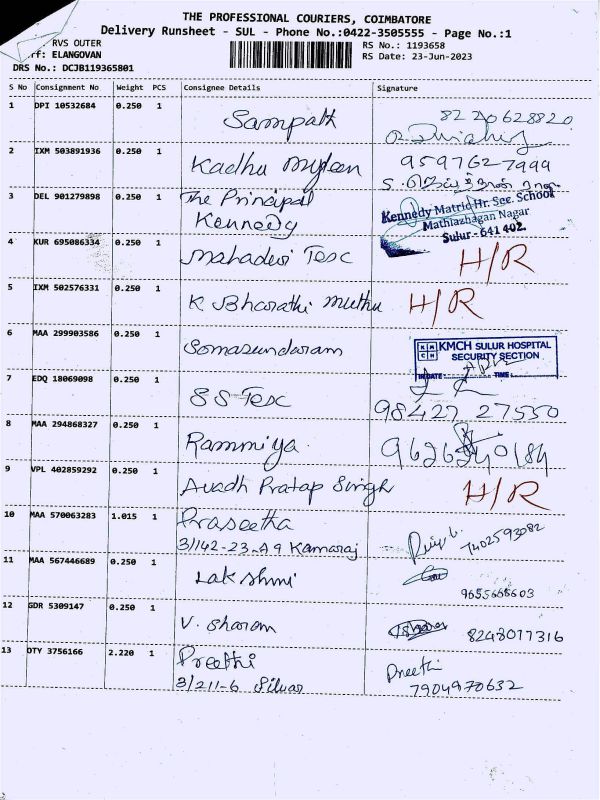 THE PROFESSIONAL COURIERS, COIMBATORE
Delivery Runsheet - SUL - Phone No.:0422-3505555 - Page No.:1
RVS OUTER
ff: ELANGOVAN
DRS No.: DCJB119365801
RS No.: 1193658
RS Date: 23-Jun-2023
S No Consignment No Weight PCS Consignee Details Signature
1 DPI 10532684 0.250 1 Sampath 8220628820
2 IXM 503891936 0.250 1 Kadhu Myteen 9597627999
3 DEL 901279898 0.250 1 The Principal
Kennedy
Kennedy Matric Hr. Sec. School
Mathiazhagan Nagar
Sulur - 641 402.
4 KUR 695086334 0.250 1 Mahadevi Texc H/R
5 IXM 502576331 0.250 1 K Bharathi Muthu H/R
6 MAA 299903586 0.250 1 Somasundaram
KMCH SULUR HOSPITAL
SECURITY SECTION
IN DATE TIME
7 EDQ 18069098 0.250 1 SS Texc 98427 27550
8 MAA 294868327 0.250 1 Rammiya
9 VPL 402859292 0.250 1 Avadh Pratap Singh H/R
10 MAA 570063283 1.015 1 Praseetha
3/142-23-A9 Kamaraj 7402593082
11 MAA 567446689 0.250 1 Lakshmi 9655668603
12 GDR 5309147 0.250 1 V. Sharam 8248077316
13 OTY 3756166 2.220 1 Preethi Preethi
3/211-6 Siluar 7904970632